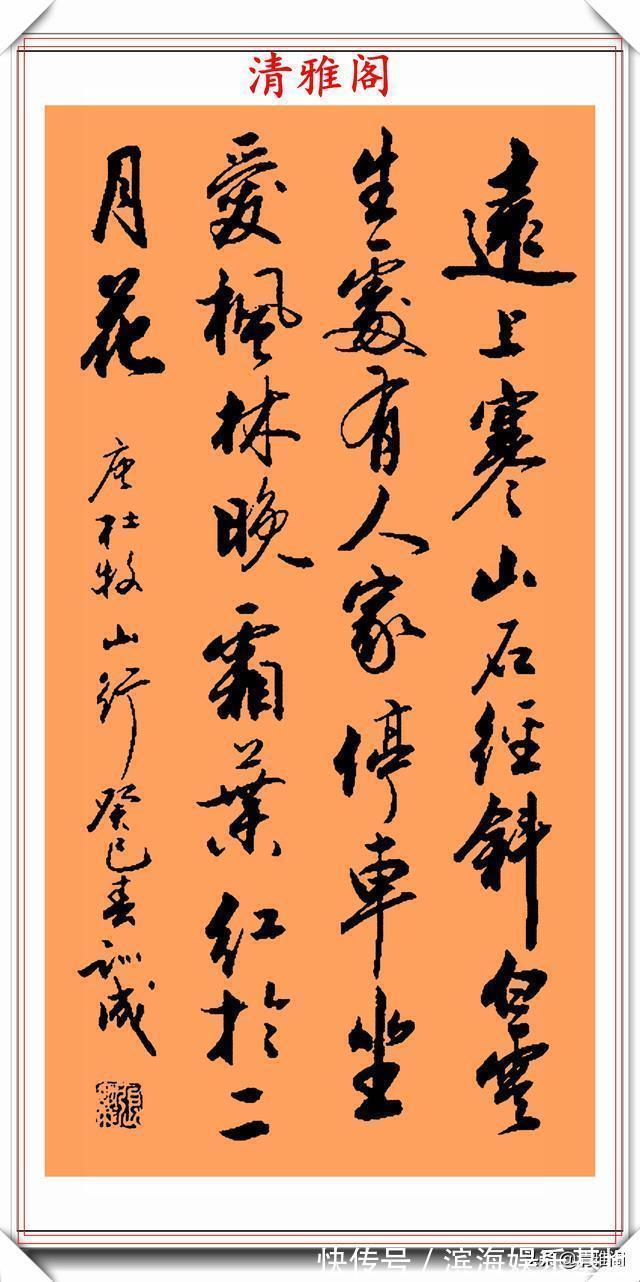 清雅阁
遠上寒山石徑斜白雲
生處有人家停車坐
愛楓林晚霜葉紅於二
月花 唐杜牧山行癸巳春訓成
快传号 / 滨海娱乐